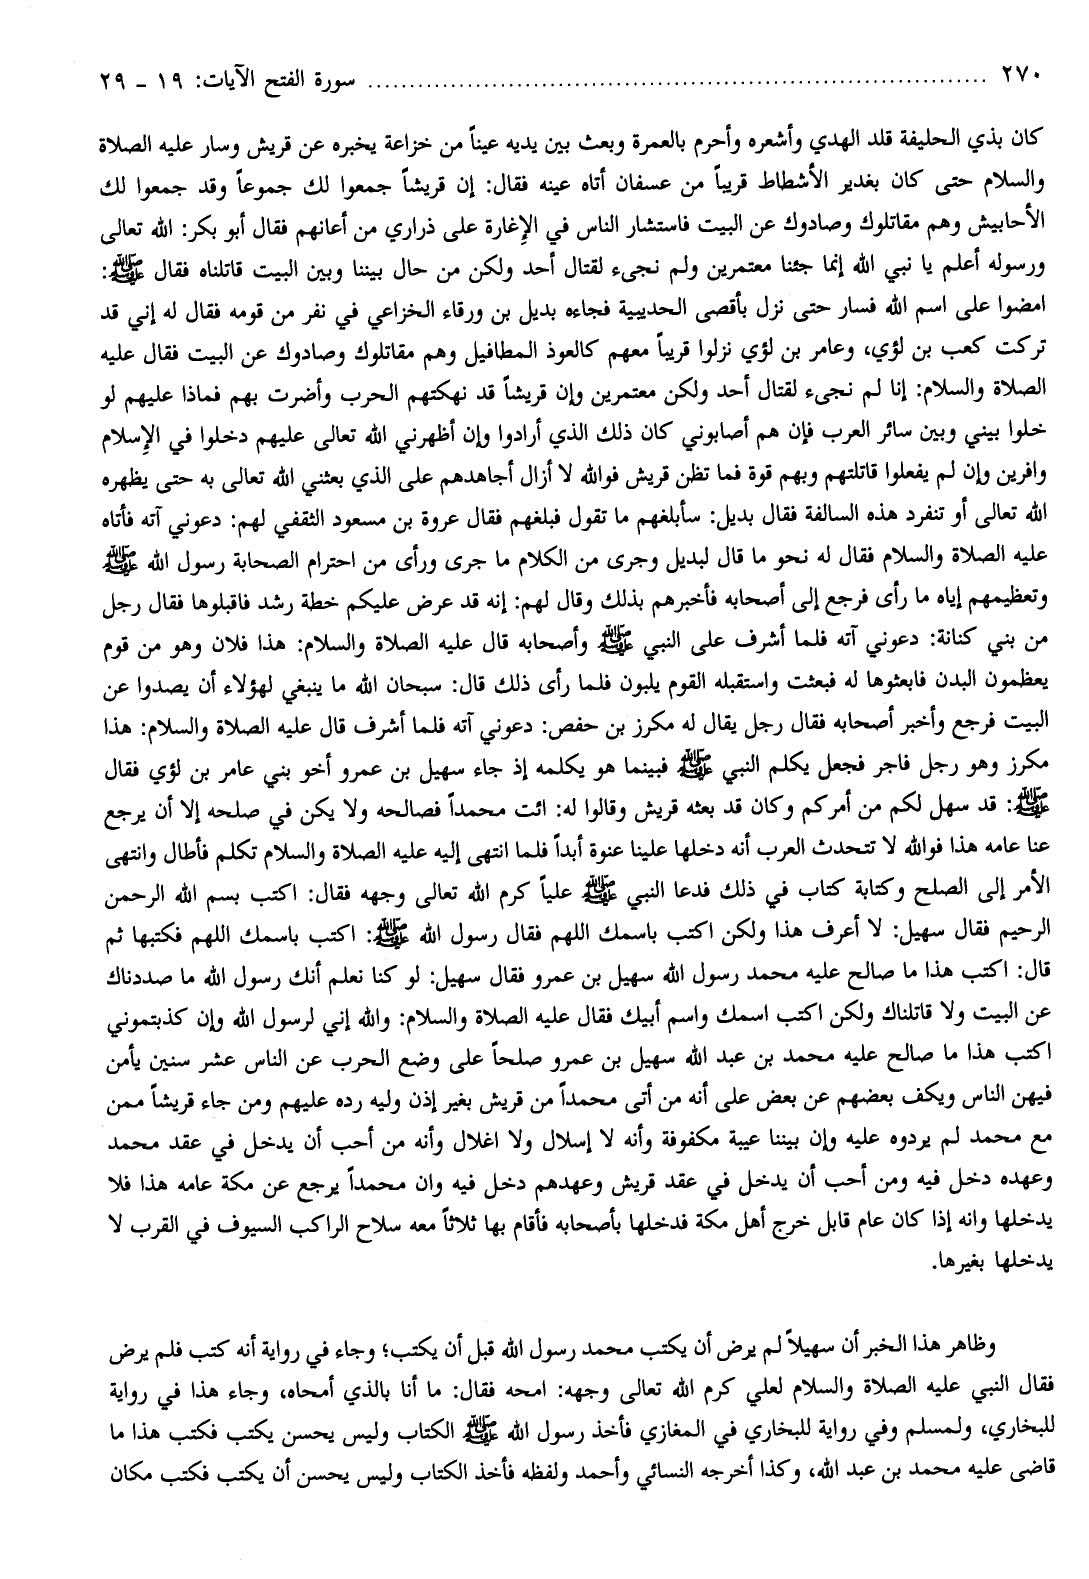 ٢٧٠ ........................................................................... سورة الفتح الآيات: ١٩ - ٢٩
كان بذي الحليفة قلد الهدي وأشعره وأحرم بالعمرة وبعث بين يديه عيناً من خزاعة يخبره عن قريش وسار عليه الصلاة
والسلام حتى كان بغدير الأشطاط قريباً من عسفان أتاه عينه فقال: إن قريشاً جمعوا لك جموعاً وقد جمعوا لك
الأحابيش وهم مقاتلوك وصادوك عن البيت فاستشار الناس في الإغارة على ذراري من أعانهم فقال أبو بكر: الله تعالى
ورسوله أعلم يا نبي الله إنما جئنا معتمرين ولم نجىء لقتال أحد ولكن من حال بيننا وبين البيت قاتلناه فقال ﷺ:
امضوا على اسم الله فسار حتى نزل بأقصى الحديبية فجاءه بديل بن ورقاء الخزاعي في نفر من قومه فقال له إني قد
تركت كعب بن لؤي، وعامر بن لؤي نزلوا قريباً معهم كالعوذ المطافيل وهم مقاتلوك وصادوك عن البيت فقال عليه
الصلاة والسلام: إنا لم نجىء لقتال أحد ولكن معتمرين وإن قريشاً قد نهكتهم الحرب وأضرت بهم فماذا عليهم لو
خلوا بيني وبين سائر العرب فإن هم أصابوني كان ذلك الذي أرادوا وإن أظهرني الله تعالى عليهم دخلوا في الإسلام
وافرين وإن لم يفعلوا قاتلتهم وبهم قوة فما تظن قريش فوالله لا أزال أجاهدهم على الذي بعثني الله تعالى به حتى يظهره
الله تعالى أو تنفرد هذه السالفة فقال بديل: سأبلغهم ما تقول فبلغهم فقال عروة بن مسعود الثقفي لهم: دعوني آته فأتاه
عليه الصلاة والسلام فقال له نحو ما قال لبديل وجرى من الكلام ما جرى ورأى من احترام الصحابة رسول الله ﷺ
وتعظيمهم إياه ما رأى فرجع إلى أصحابه فأخبرهم بذلك وقال لهم: إنه قد عرض عليكم خطة رشد فاقبلوها فقال رجل
من بني كنانة: دعوني آته فلما أشرف على النبي ﷺ وأصحابه قال عليه الصلاة والسلام: هذا فلان وهو من قوم
يعظمون البدن فابعثوها له فبعثت واستقبله القوم يلبون فلما رأى ذلك قال: سبحان الله ما ينبغي لهؤلاء أن يصدوا عن
البيت فرجع وأخبر أصحابه فقال رجل يقال له مكرز بن حفص: دعوني آته فلما أشرف قال عليه الصلاة والسلام: هذا
مكرز وهو رجل فاجر فجعل يكلم النبي ﷺ فبينما هو يكلمه إذ جاء سهيل بن عمرو أخو بني عامر بن لؤي فقال
ﷺ: قد سهل لكم من أمركم وكان قد بعثه قريش وقالوا له: ائت محمداً فصالحه ولا يكن في صلحه إلا أن يرجع
عنا عامه هذا فوالله لا تتحدث العرب أنه دخلها علينا عنوة أبداً فلما انتهى إليه عليه الصلاة والسلام تكلم فأطال وانتهى
الأمر إلى الصلح وكتابة كتاب في ذلك فدعا النبي ﷺ علياً كرم الله تعالى وجهه فقال: اكتب بسم الله الرحمن
الرحيم فقال سهيل: لا أعرف هذا ولكن اكتب باسمك اللهم فقال رسول الله ﷺ: اكتب باسمك اللهم فكتبها ثم
قال: اكتب هذا ما صالح عليه محمد رسول الله سهيل بن عمرو فقال سهيل: لو كنا نعلم أنك رسول الله ما صددناك
عن البيت ولا قاتلناك ولكن اكتب اسمك واسم أبيك فقال عليه الصلاة والسلام: والله إني لرسول الله وإن كذبتموني
اكتب هذا ما صالح عليه محمد بن عبد الله سهيل بن عمرو صلحاً على وضع الحرب عن الناس عشر سنين يأمن
فيهن الناس ويكف بعضهم عن بعض على أنه من أتى محمداً من قريش بغير إذن وليه رده عليهم ومن جاء قريشاً ممن
مع محمد لم يردوه عليه وإن بيننا عيبة مكفوفة وأنه لا إسلال ولا اغلال وأنه من أحب أن يدخل في عقد محمد
وعهده دخل فيه ومن أحب أن يدخل في عقد قريش وعهدهم دخل فيه وان محمداً يرجع عن مكة عامه هذا فلا
يدخلها وانه إذا كان عام قابل خرج أهل مكة فدخلها بأصحابه فأقام بها ثلاثاً معه سلاح الراكب السيوف في القرب لا
يدخلها بغيرها.
وظاهر هذا الخبر أن سهيلاً لم يرض أن يكتب محمد رسول الله قبل أن يكتب؛ وجاء في رواية أنه كتب فلم يرض
فقال النبي عليه الصلاة والسلام لعلي كرم الله تعالى وجهه: امحه فقال: ما أنا بالذي أمحاه، وجاء هذا في رواية
للبخاري، ولمسلم وفي رواية للبخاري في المغازي فأخذ رسول الله ﷺ الكتاب وليس يحسن يكتب فكتب هذا ما
قاضى عليه محمد بن عبد الله، وكذا أخرجه النسائي وأحمد ولفظه فأخذ الكتاب وليس يحسن أن يكتب فكتب مكان